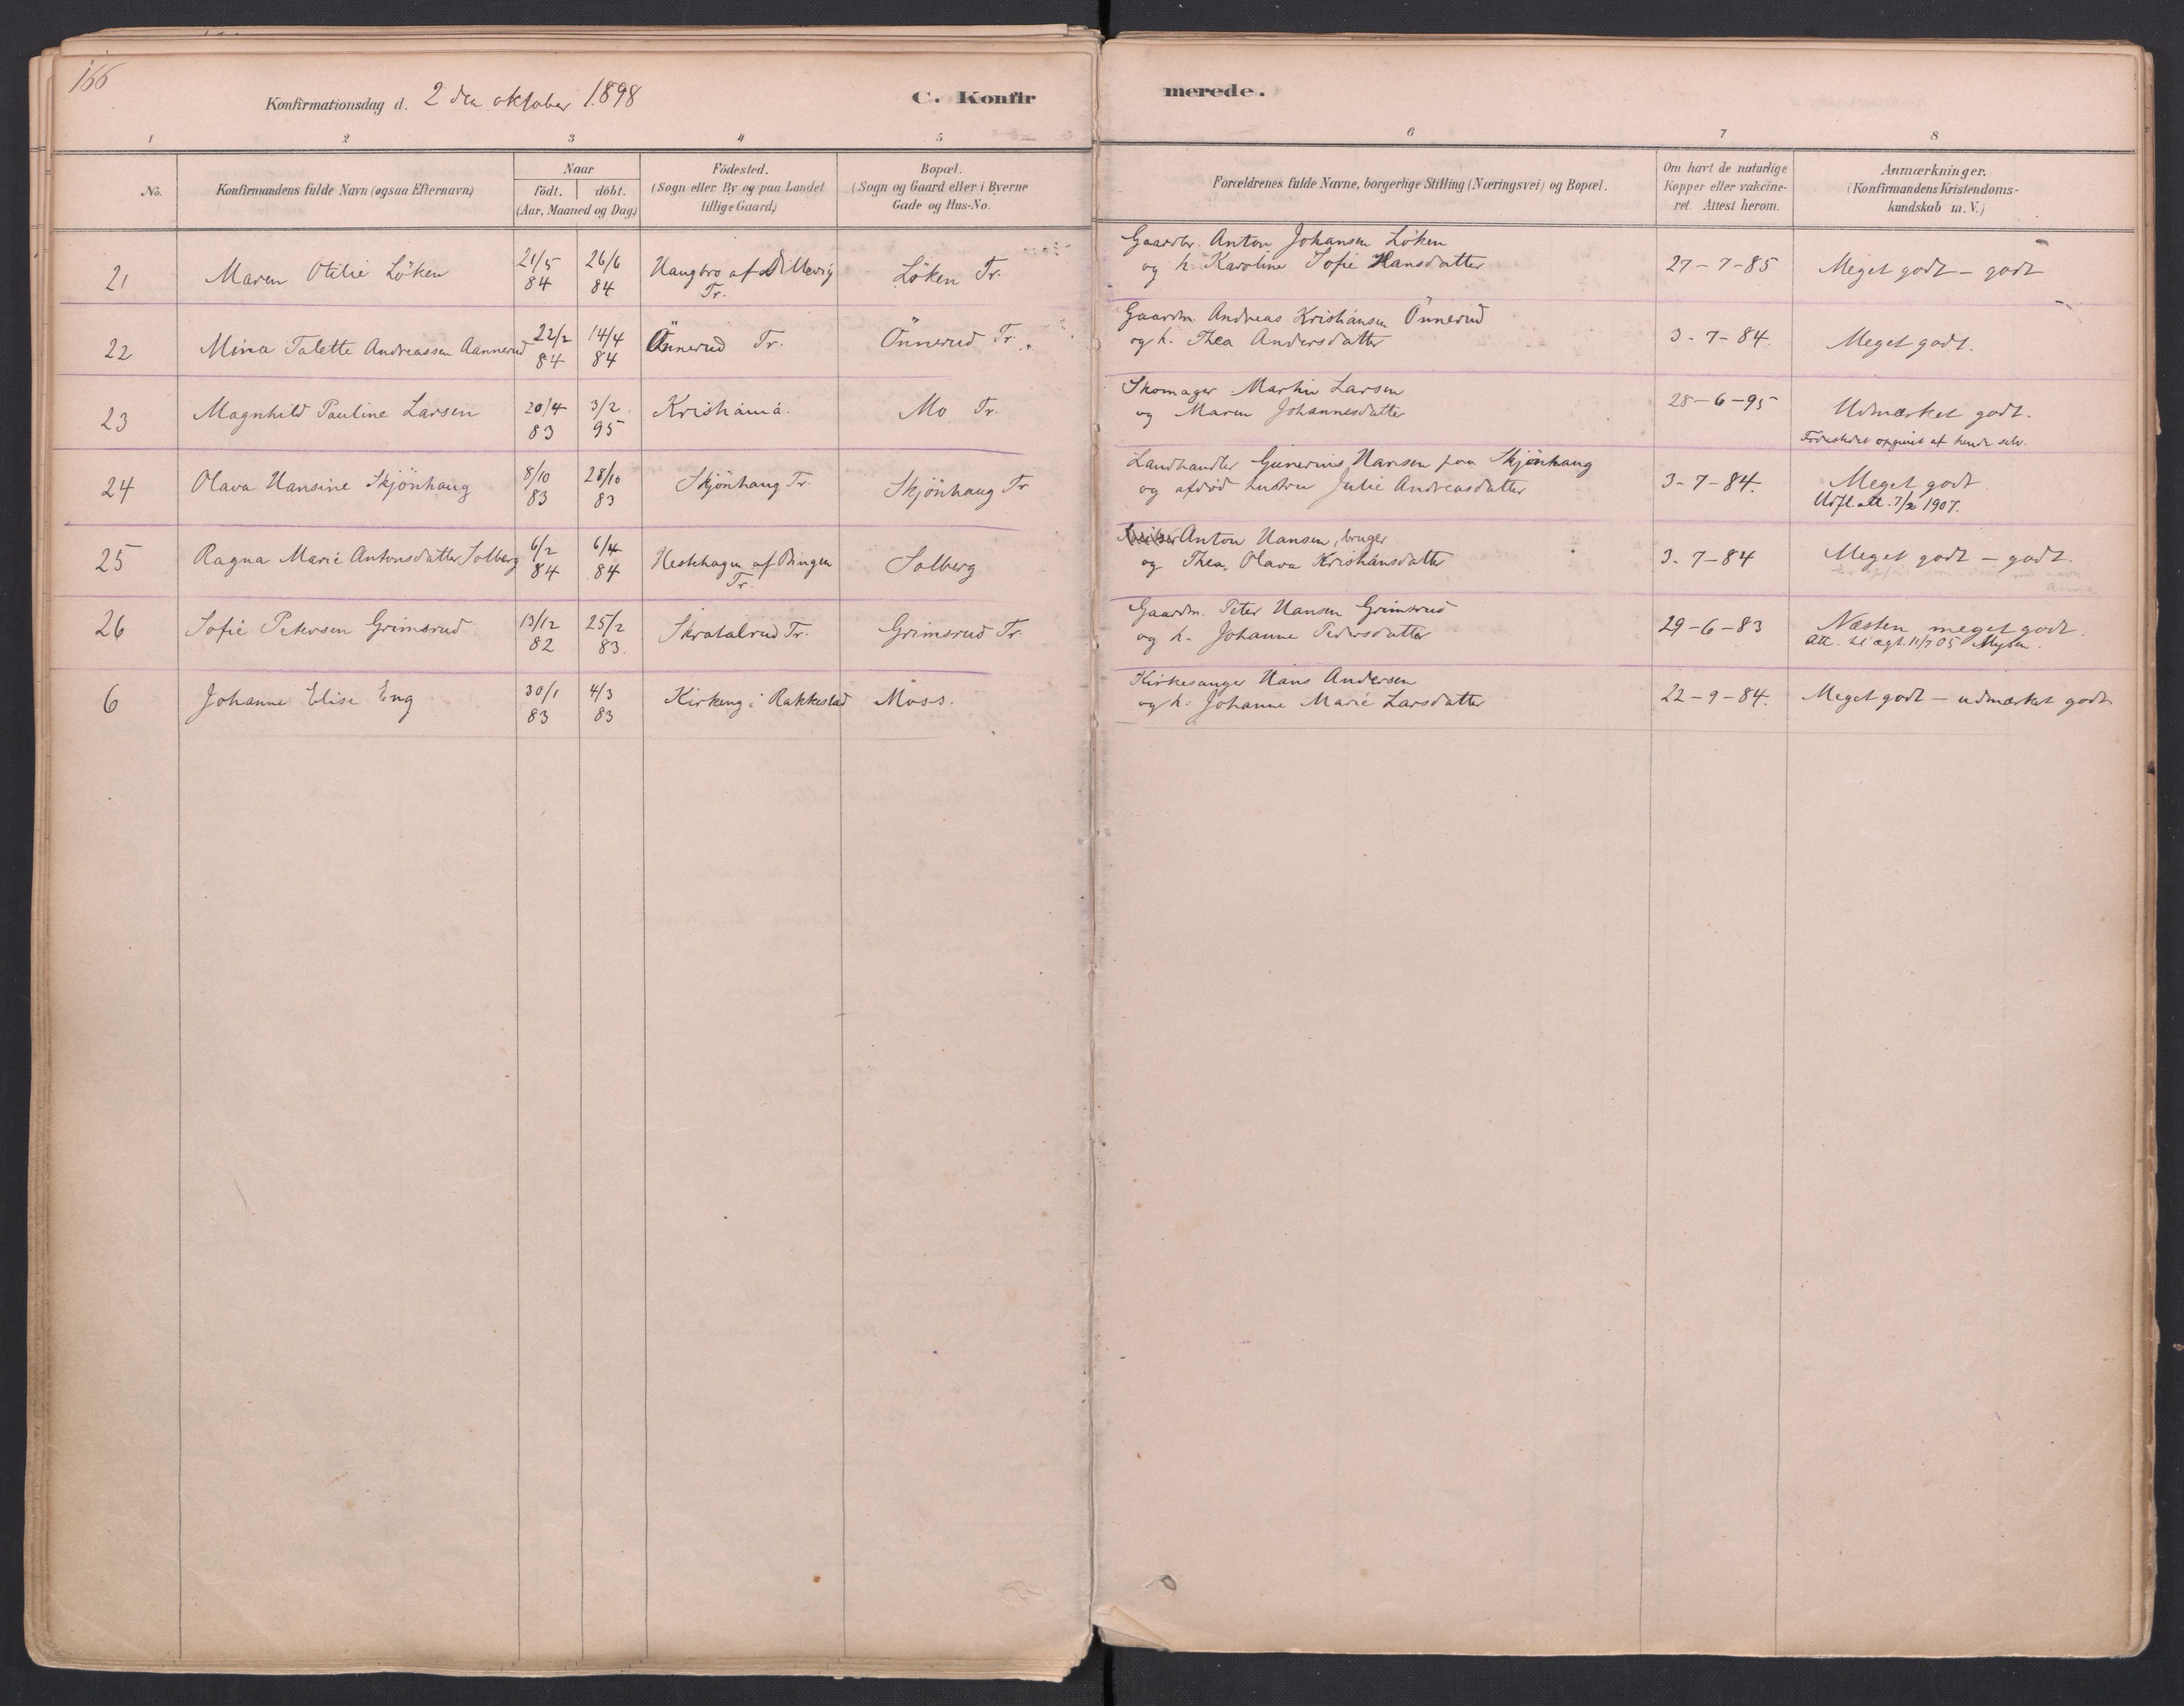 166
Konfirmationsdag d. 2den oktober 1898
C. Konfirmerede.
1 2 3 4 5 6 7 8
No.
Konfirmandens fulde Navn (ogsaa Efternavn)
Naar
födt. döbt.
(Aar, Maaned og Dag)
Födested.
(Sogn eller By og paa Landet
tillige Gaard)
Bopæl.
(Sogn og Gaard eller i Byerne
Gade og Hus-No.
Forældrenes fulde Navne, borgerlige Stilling (Næringsvei) og Bopæl.
Om havt de naturlige
Kopper eller vakcine-
ret. Attest herom.
Anmærkninger.
(Konfirmandens Kristendoms-
kundskab m. V.)
21 Maren Otilie Löken 21/5 84 26/6 84 Haugbro af Dillevig Tr. Löken Tr.
Gaardbr. Anton Johansen Löken
og h. Karoline Sofie Hansdatter
27-7-85 Meget godt - godt
22 Mina Talette Andreassen Aannerud 22/2 84 14/4 84 Önnerud Tr. Önnerud Tr.
Gaardm. Andreas Kristiansen Önnerud
og h. Thea Andersdatter
3-7-84. Meget godt.
23 Magnhild Pauline Larsen 20/4 83 3/2 95 Kristiania. Mo Tr.
Skomager Martin Larsen
og Maren Johannesdatter
28-6-95 Udmærket godt.
Födestedet opgivet af hende selv.
24 Olava Hansine Skjönhaug 8/10 83 28/10 83 Skjönhaug Tr. Skjönhaug Tr
Landhandler Gunerius Hansen paa Skjönhaug
og afdöd hustru Julie Andreasdatter
3-7-84. Meget godt
Udfl. att. 7/2 1907.
25 Ragna Marie Antonsdatter Solberg 6/2 84 6/4 84 Hestehagen af Bingen Tr. Solberg
Anton Hansen, bruger
og Thea Olava Kristiansdatter
3-7-84 Meget godt - godt.
26 Sofie Petersen Grimsrud 13/12 82 25/2 83. Skratalrud Tr. Grimsrud Tr.
Gaardm. Peter Hansen Grimsrud
og h. Johanne Pedersdatter
29-6-83 Næsten meget godt.
Att. til ægt. 11/7 05 Mysen.
6 Johanne Elise Eng 30/1 83 4/3 83 Kirkeng i Rakkestad Moss.
Kirkesanger Hans Andersen
og h. Johanne Marie Larsdatter
22-9-84. Meget godt - udmærket godt